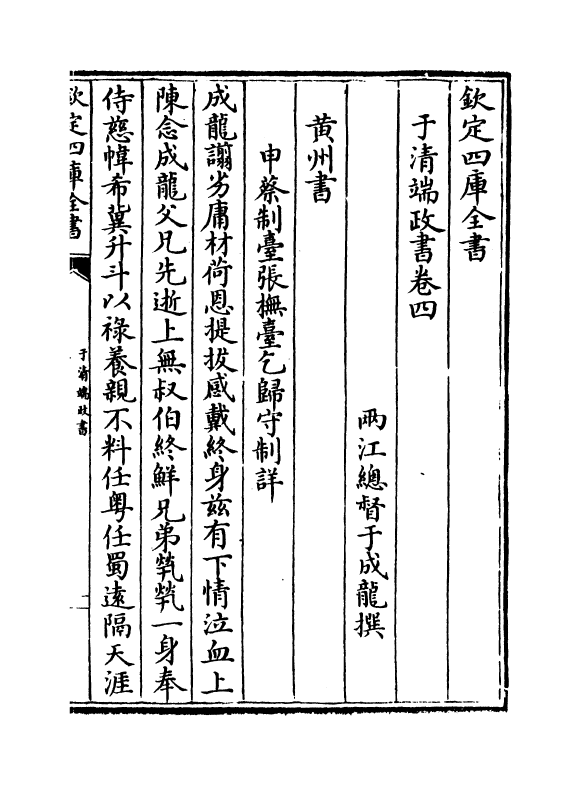 欽定四庫全書
于清端政書卷四
兩江總督于成龍撰
黃州書
申蔡制臺張撫臺乞歸守制詳
成龍謭劣庸材荷恩提拔感戴終身茲有下情泣血上
陳念成龍父兄先逝上無叔伯終鮮兄弟煢煢一身奉
侍慈幃希冀升斗以祿養親不料任粵任蜀遠隔天涯
欽定四庫全書
于清端政書
一